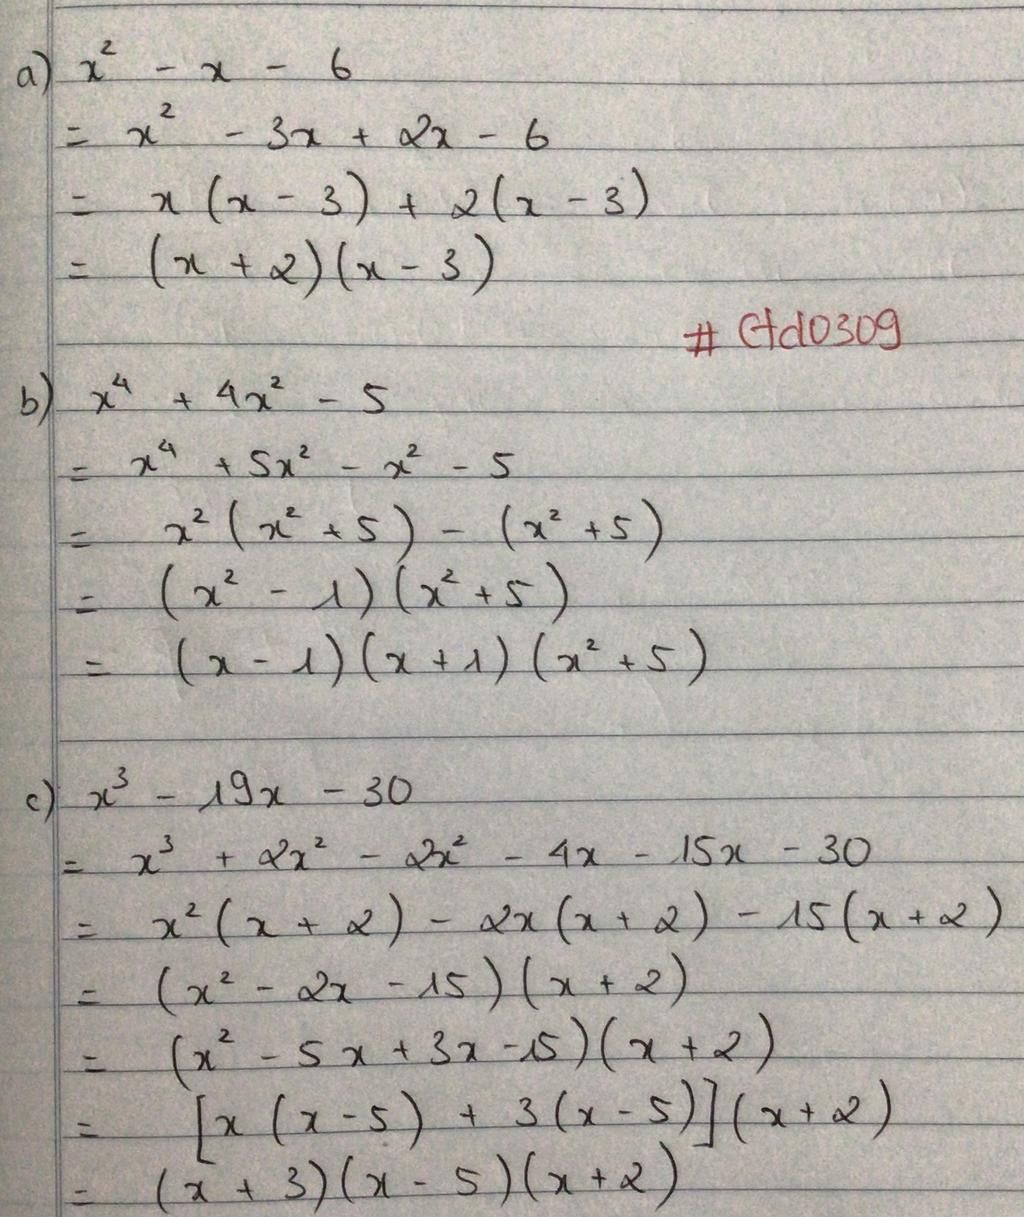 a) x² - x - 6
= x² - 3x + 2x - 6
= x (x - 3) + 2(x - 3)
= (x + 2)(x - 3)
# Ctd0309
b) x⁴ + 4x² - 5
= x⁴ + 5x² - x² - 5
= x² (x² + 5) - (x² + 5)
= (x² - 1)(x² + 5)
= (x - 1)(x + 1)(x² + 5)
c) x³ - 19x - 30
= x³ + 2x² - 2x² - 4x - 15x - 30
= x² (x + 2) - 2x (x + 2) - 15 (x + 2)
= (x² - 2x - 15)(x + 2)
= (x² - 5x + 3x - 15)(x + 2)
= [x (x - 5) + 3 (x - 5)](x + 2)
= (x + 3)(x - 5)(x + 2)